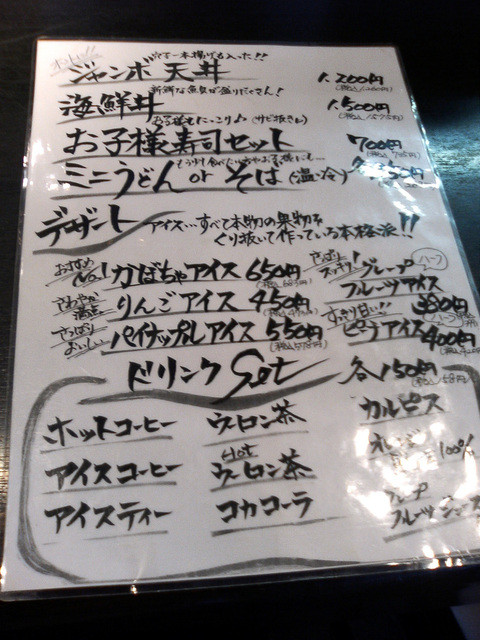 穴子一本揚げも入った!!
ジャンボ天丼 1,200円
(税込1,260円)
新鮮な魚貝が盛りだくさん!
海鮮丼 1,500円
(税込1,575円)
お子様もにっこり♪(サビ抜き)
お子様寿司セット 700円
(税込735円)
ミニうどんorそば(温・冷)
デザート アイス…すべて本物の果物を
くり抜いて作っている本格派!!
おすすめNo.1 かぼちゃアイス 650円
(税込683円)
さっぱりスッキリ! グレープフルーツアイス
ハーフ
さわやか満点 りんごアイス 450円
さっぱりおいしい パイナップルアイス 550円
(税込578円)
すっきり甘い!! ピーチアイス 400円
ドリンクSet 各150円
(税込158円)
ホットコーヒー ウーロン茶 カルピス
アイスコーヒー Hotウーロン茶 オレンジ 100%
アイスティー コカコーラ グレープフルーツジュース